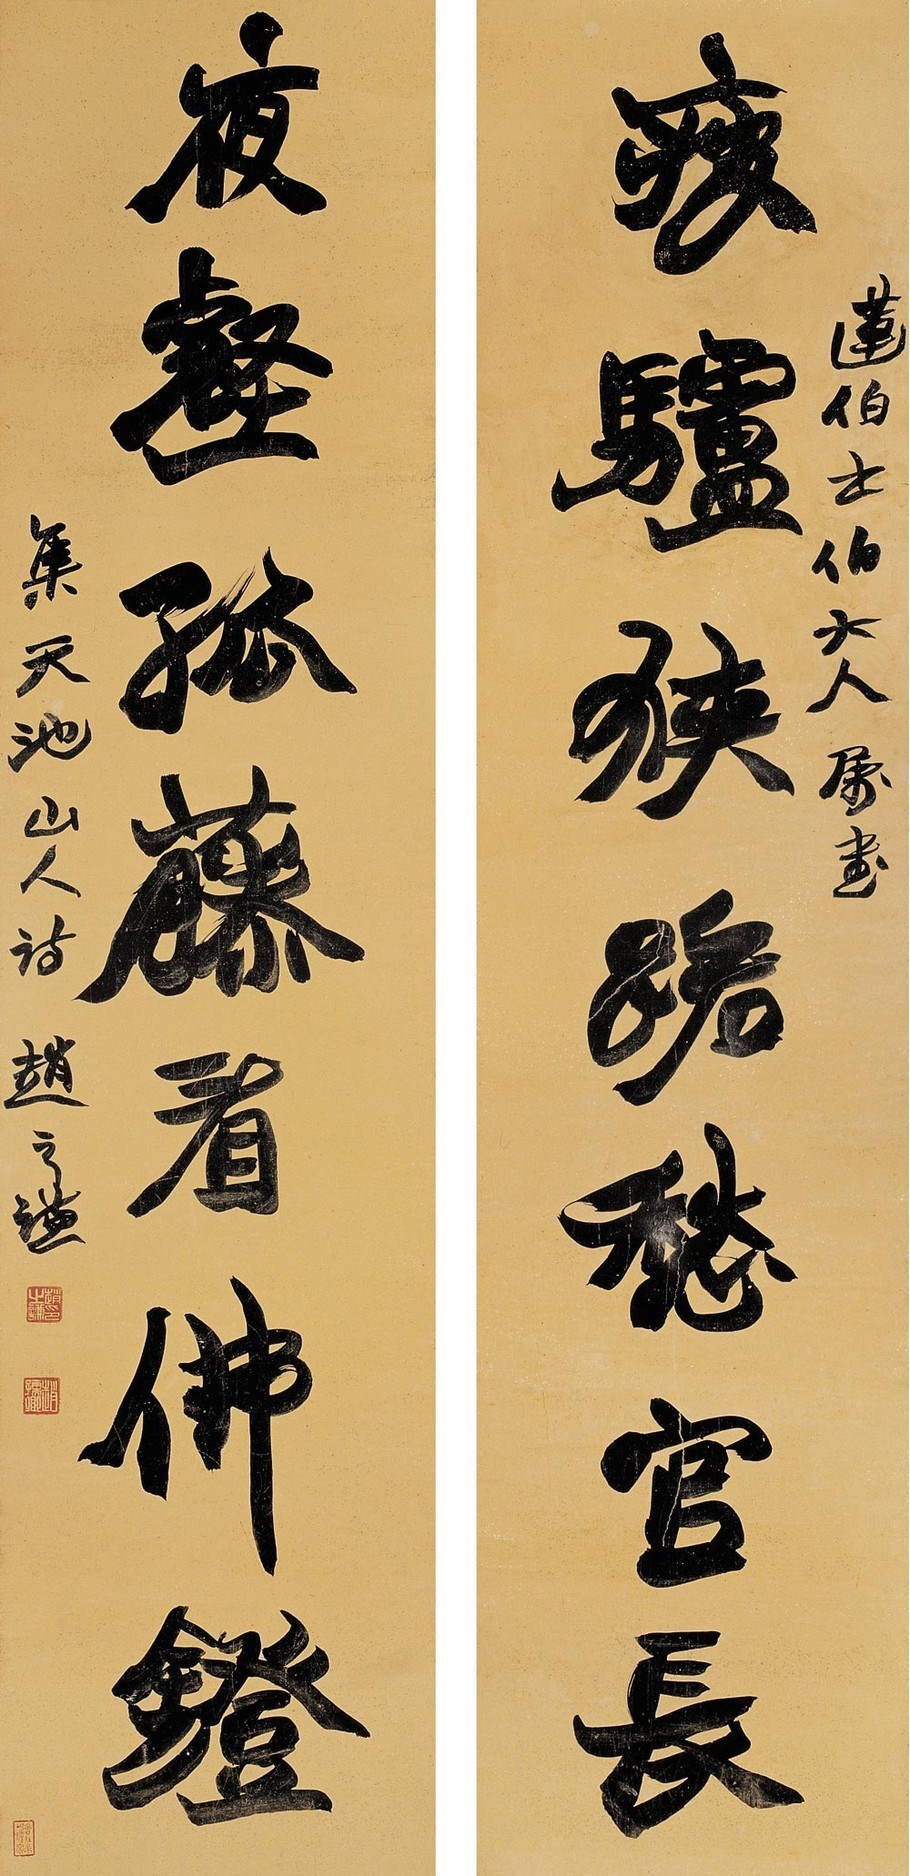 蓮伯士伯大人屬書
疲驢狹路愁官長
夜壑孤藤看佛鐙
集天池山人詩 趙之謙
趙之謙印